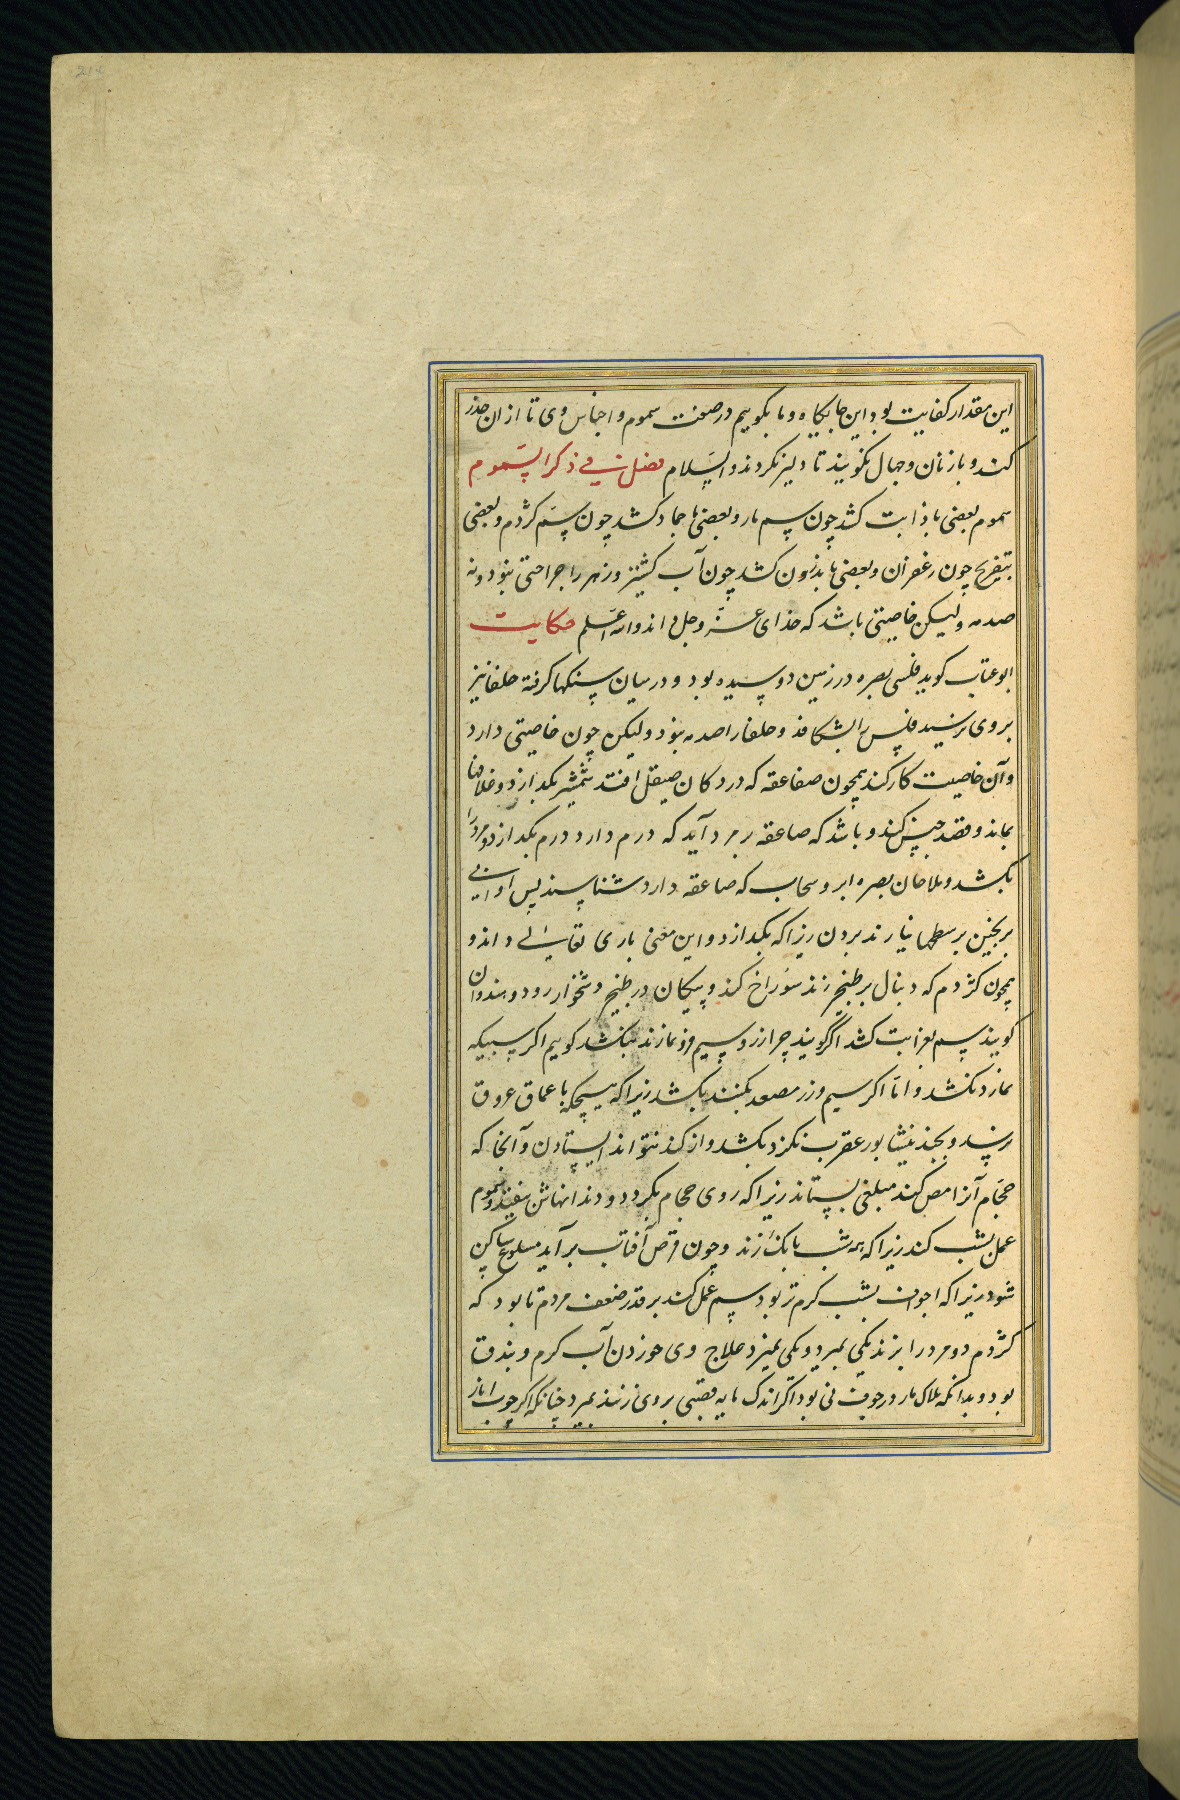 214
این مقدار کفایت بود این جایکاه و ما بکوییم در صفت سموم و اجناس وی تا از ان حذر
کنند و با زنان و جهال نکویند تا دلیر نکردند والسلام فصل فی ذکر السموم
سموم بعضی باذابت کشد چون سم مار و بعضی باجماد کشد چون سم کژدم و بعضی
بتفریح چون زعفران و بعضی کشد چون آب کشنیز و زهر را جراحتی نبود و نه
صدمه ولیکن خاصیتی باشد که خدای عز وجل داند والله اعلم حکایت
ابوعتاب کوید فلسی ببصره در زمین دوسیده بود و در میان سنکها کرفته حلفا نیز
بروی رسید فلس را بشکافد و حلفا را صدمه نبود ولیکن چون خاصیتی دارد
وآن خاصیت کار کند همچون صاعقه که در دکان صیقل افتد شمشیر بکدازد و غلافها
بماند و قصد جنس کند و باشد که صاعقه بر مرد آید که درم دارد درم بکدازد و مرد را
بکشد و ملاحان بصره ابر و سحاب که صاعقه دارد شناسند پس اوانی
برنجین بر سطحها نیارند بردن زیرا که بکدازد و این معنی باری تعالی داند و
همچون کژدم که دنبال بر طنجیر زند سوراخ کند و پیکان در طنجیر دشخوار رود و هندوان
کویند سم بغرابت کشد اگر کویند چرا زر و سیم فرو نمارند نکشد کوییم اکر سبیکه
نمارد نکشد و اما اکر سیم و زر مصعد بکنند بکشد زیرا که باعماق عروق
برسد و بجند نیشابور عقرب نکزد بکشد و از کند نتواند ایستادن و آنجا که
حجام آنرا مص کند مبلغی بستاند زیرا که روی حجام بکردد و دندانهاش بیفتد و سموم
عمل بشب کند زیرا که همه شب بانک زند و چون قرص آفتاب برآید ملسوع ساکن
شود زیرا که اجواف بشب کرم تر بود سم عمل کند بر قدر ضعف مردم تا بود که
کژدم دو مرد را بزند یکی بمیرد و یکی نمیرد علاج وی خوردن آب کرم و بندق
بود و بدانکه هلاک مار در جوف نی بود اکر اندک مایه قصبی بروی زنند بمیرد چنانکه اکر چوب